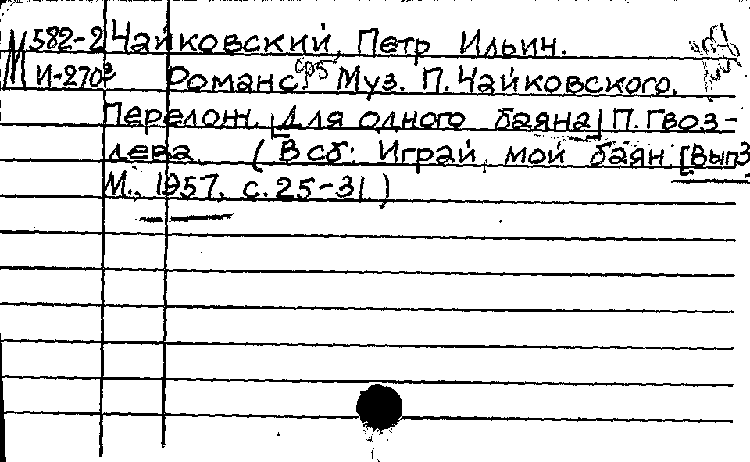 М 582-2 Чайковский, Петр Ильич.
И-270³ Романс. ор5 Муз. П. Чайковского.
Перелож. [для одного баяна] П. Гвоз-
дева. (В сб: Играй, мой баян. [Вып3
М., 1957, с. 25-31.)